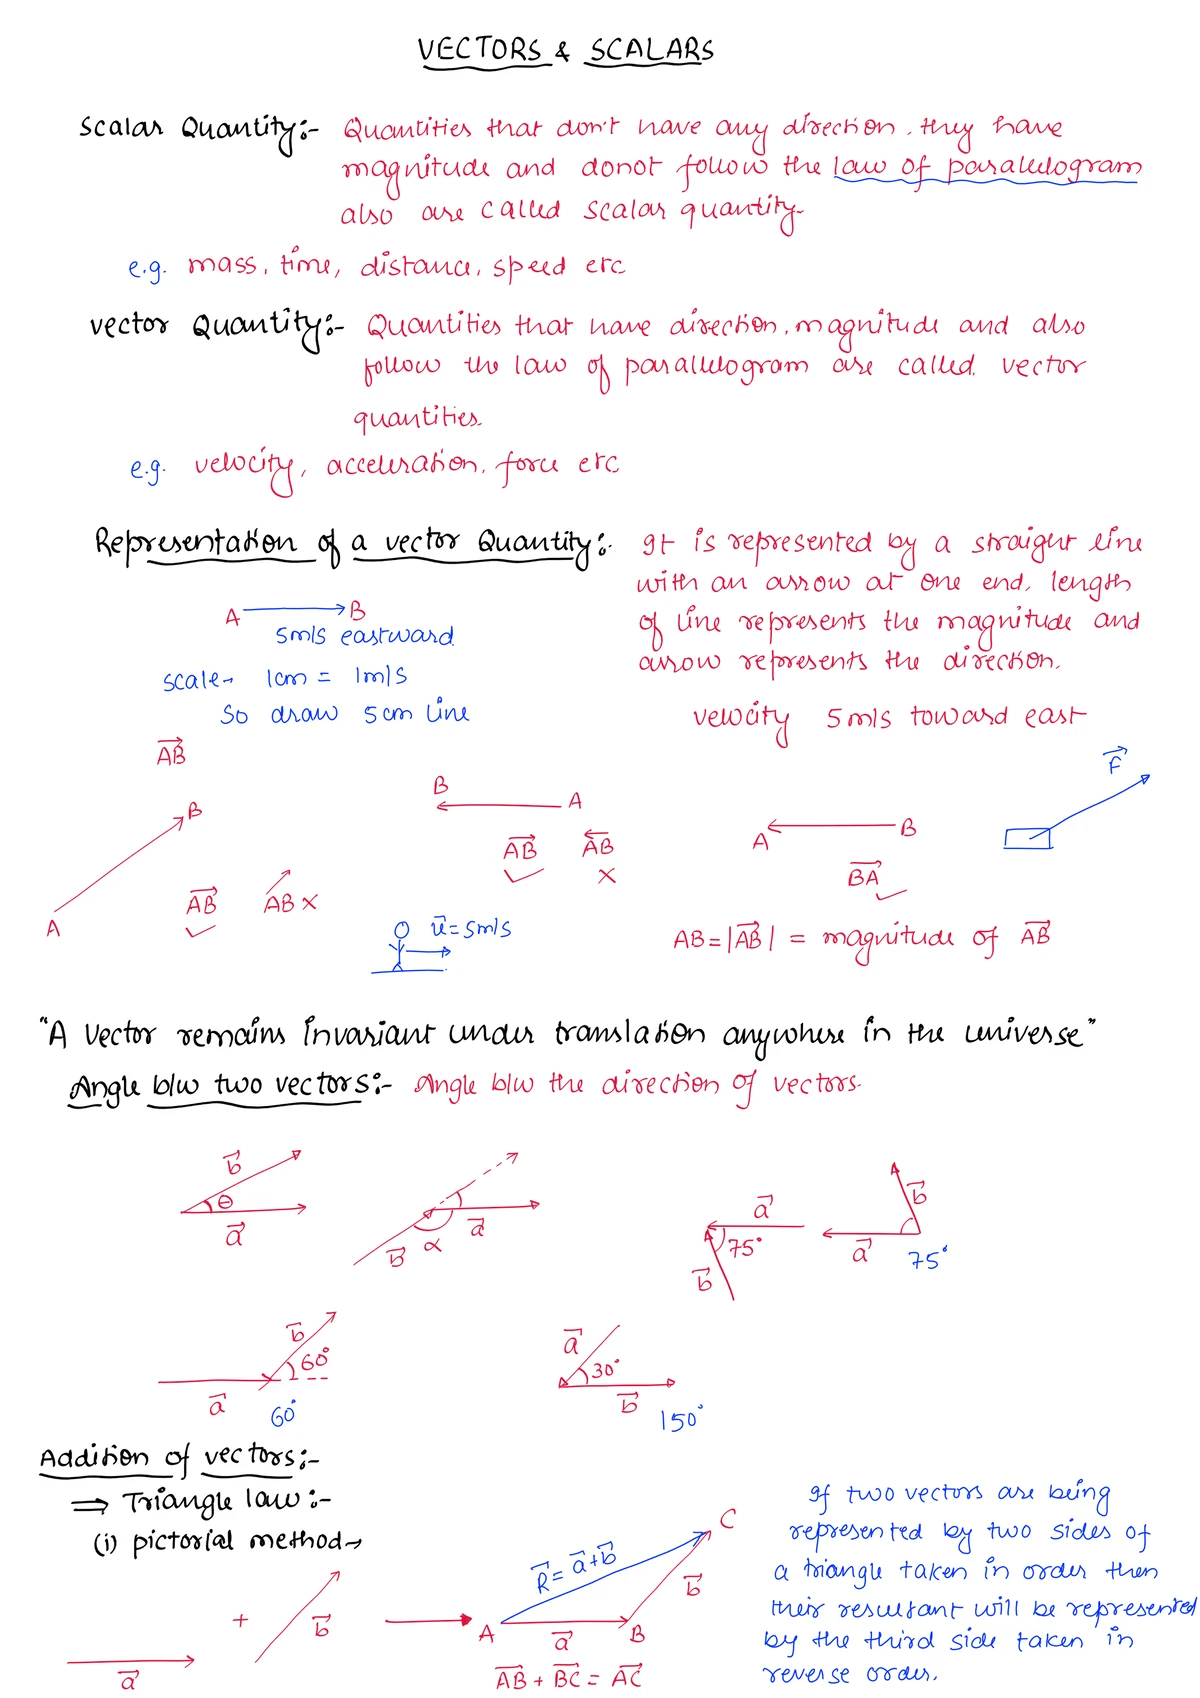 VECTORS & SCALARS
Scalar Quantity:- Quantities that don't have any direction, they have
magnitude and donot follow the law of parallelogram
also are called scalar quantity.
e.g. mass, time, distance, speed etc
vector Quantity:- Quantities that have direction, magnitude and also
follow the law of parallelogram are called vector
quantities.
e.g. velocity, acceleration, force etc
Representation of a vector Quantity:- It is represented by a straight line
with an arrow at one end, length
of line represents the magnitude and
arrow represents the direction.
A B
5m/s eastward
scale→ 1cm = 1m/s
So draw 5cm line
velocity 5m/s toward east
$\overrightarrow{AB}$
A B
$\overrightarrow{AB}$ ✓ AB ×
B A
$\overrightarrow{AB}$ ✓ $\overleftarrow{AB}$ ×
A B
$\overrightarrow{BA}$ ✓
$\vec{F}$
$\vec{u}$ = 5m/s
AB = |$\overrightarrow{AB}$| = magnitude of $\overrightarrow{AB}$
"A vector remains invariant under translation anywhere in the universe"
Angle b/w two vectors:- Angle b/w the direction of vectors.
$\vec{b}$ θ $\vec{a}$
$\vec{b}$ α $\vec{a}$
$\vec{a}$ 75° $\vec{b}$
$\vec{b}$ $\vec{a}$ 75°
$\vec{b}$ 60° $\vec{a}$ 60°
$\vec{a}$ 30° $\vec{b}$ 150°
Addition of vectors:-
⇒ Triangle law:-
(i) pictorial method→
$\vec{a}$ + $\vec{b}$
A B C
$\vec{R}$ = $\vec{a}$ + $\vec{b}$
$\vec{a}$ $\vec{b}$
$\overrightarrow{AB}$ + $\overrightarrow{BC}$ = $\overrightarrow{AC}$
If two vectors are being
represented by two sides of
a triangle taken in order then
their resultant will be represented
by the third side taken in
reverse order.